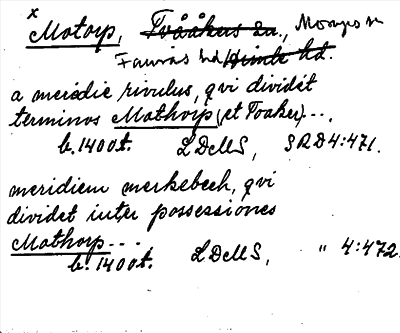 x
Motorp, Tvååkers sn., Morups sn
Faurås hd Himle hd.
a meridie rivulus, qvi dividet
terminos Mothorp (et Toaker)...
b. 1400t. LDMS, SRD 4:471.
meridiem merkebech, qvi
dividet inter possessiones
Mothorp...
b. 1400t. LDMS, " 4:472.